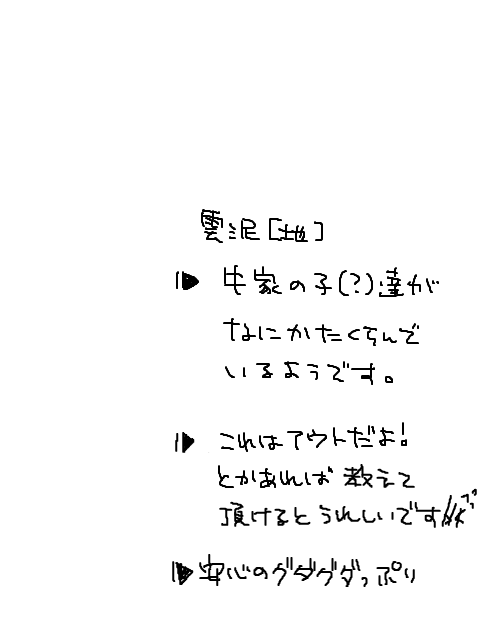 雲泥[地]
生家の子(?)達が
なにかたくらんで
いるようです。
これはアウトだよ!
とかあれば教えて
頂けるとうれしいです
安心のグダグダっぷり